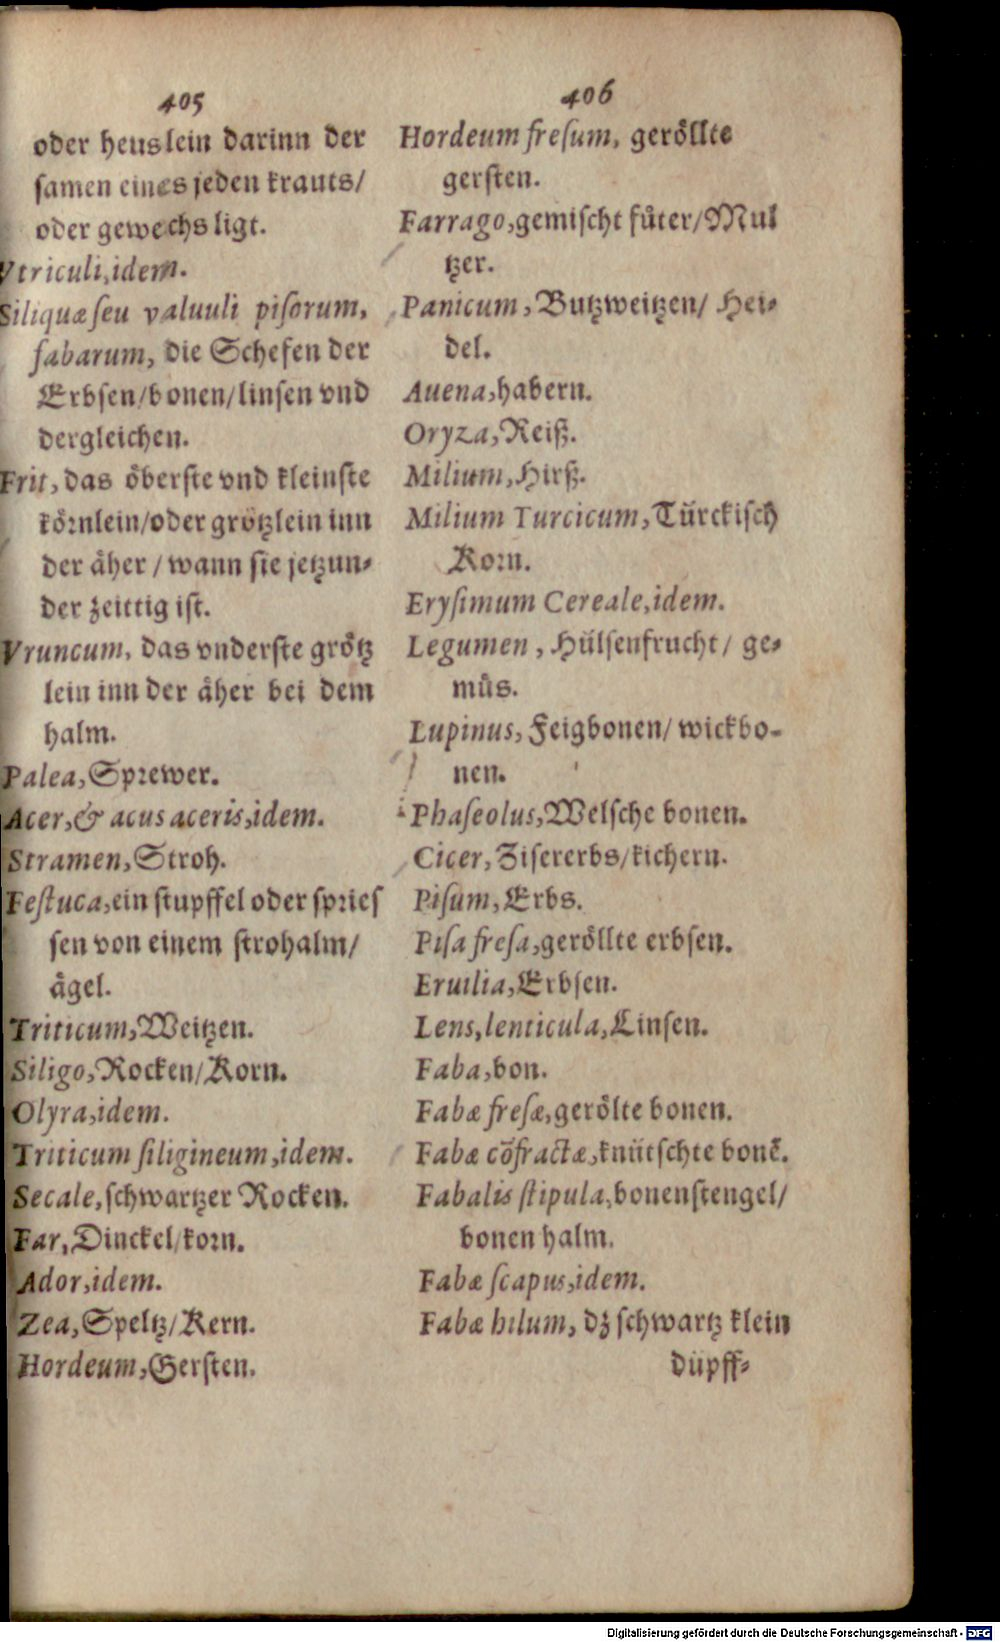 405
oder heuslein darinn der
samen eines jeden krauts/
oder gewechs ligt.
Vtriculi, idem.
Siliquæ seu valuuli pisorum,
fabarum, die Schefen der
Erbsen/bonen/linsen vnd
dergleichen.
Frit, das öberste vnd kleinste
körnlein/oder grötzlein inn
der äher / wann sie jetzun-
der zeittig ist.
Vruncum, das vnderste grötz
lein inn der äher bei dem
halm.
Palea, Sprewer.
Acer, & acus aceris, idem.
Stramen, Stroh.
Festuca, ein stupffel oder spries
sen von einem strohalm/
ägel.
Triticum, Weitzen.
Siligo, Rocken/Korn.
Olyra, idem.
Triticum siligineum, idem.
Secale, schwartzer Rocken.
Far, Dinckel/korn.
Ador, idem.
Zea, Speltz/Kern.
Hordeum, Gersten.
406
Hordeum fresum, geröllte
gersten.
Farrago, gemischt füter/Mul
tzer.
Panicum, Butzweitzen/ Hei-
del.
Auena, habern.
Oryza, Reiß.
Milium, Hirß.
Milium Turcicum, Türckisch
Korn.
Erysimum Cereale, idem.
Legumen, Hülsenfrucht/ ge-
müs.
Lupinus, Feigbonen/ wickbo-
nen.
Phaseolus, Welsche bonen.
Cicer, Zisererbs/kichern.
Pisum, Erbs.
Pisa fresa, geröllte erbsen.
Eruilia, Erbsen.
Lens, lenticula, Linsen.
Faba, bon.
Fabæ fresæ, gerölte bonen.
Fabæ cõfractæ, knütschte bonẽ.
Fabalis stipula, bonenstengel/
bonen halm.
Fabæ scapus, idem.
Fabæ hilum, dz schwartz klein
düpff-
Digitalisierung gefördert durch die Deutsche Forschungsgemeinschaft - DFG